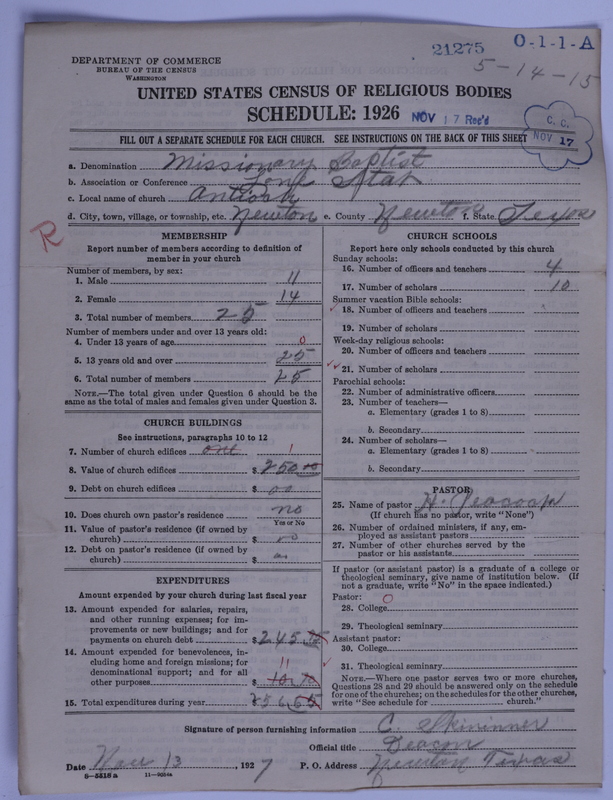 21275 O-1-1-A
5-14-15
DEPARTMENT OF COMMERCE
BUREAU OF THE CENSUS
WASHINGTON
UNITED STATES CENSUS OF RELIGIOUS BODIES
SCHEDULE: 1926 NOV 17 Rec'd
C. C.
NOV 17
FILL OUT A SEPARATE SCHEDULE FOR EACH CHURCH. SEE INSTRUCTIONS ON THE BACK OF THIS SHEET
a. Denomination Missionary Baptist
b. Association or Conference Lone Star
c. Local name of church Antioch
d. City, town, village, or township, etc. Newton e. County Newton f. State Texas
R
MEMBERSHIP
Report number of members according to definition of
member in your church
Number of members, by sex:
1. Male 11
2. Female 14
3. Total number of members 25
Number of members under and over 13 years old:
4. Under 13 years of age 0
5. 13 years old and over 25
6. Total number of members 25
NOTE.—The total given under Question 6 should be
same as the total of males and females given under Question 3.
CHURCH BUILDINGS
See instructions, paragraphs 10 to 12
7. Number of church edifices one 1
8. Value of church edifices $ 250 00
9. Debt on church edifices $ 00
10. Does church own pastor's residence no
Yes or No
11. Value of pastor's residence (if owned by
church) $ no
12. Debt on pastor's residence (if owned by
church) $
EXPENDITURES
Amount expended by your church during last fiscal year
13. Amount expended for salaries, repairs,
and other running expenses; for im-
provements or new buildings; and for
payments on church debt $ 245
14. Amount expended for benevolences, in-
cluding home and foreign missions; for
denominational support; and for all
other purposes $ 11
15. Total expenditures during year $ 256
CHURCH SCHOOLS
Report here only schools conducted by this church
Sunday schools:
16. Number of officers and teachers 4
17. Number of scholars 10
Summer vacation Bible schools:
18. Number of officers and teachers
19. Number of scholars
Week-day religious schools:
20. Number of officers and teachers
21. Number of scholars
Parochial schools:
22. Number of administrative officers
23. Number of teachers—
a. Elementary (grades 1 to 8)
b. Secondary
24. Number of scholars—
a. Elementary (grades 1 to 8)
b. Secondary
PASTOR
25. Name of pastor H.
(If church has no pastor, write "None")
26. Number of ordained ministers, if any, em-
ployed as assistant pastors
27. Number of other churches served by the
pastor or his assistants
If pastor (or assistant pastor) is a graduate of a college or
theological seminary, give name of institution below. (If
not a graduate, write "No" in the space indicated.)
Pastor: 0
28. College
29. Theological seminary
Assistant pastor:
30. College
31. Theological seminary
NOTE.—Where one pastor serves two or more churches,
Questions 28 and 29 should be answered only on the schedule
for one of the churches; on the schedules for the other churches,
write "See schedule for church."
Signature of person furnishing information C. Skininner
Official title Deacon
Date Nov 13, 1927 P. O. Address Newton Texas
8-5518a 11-9054a